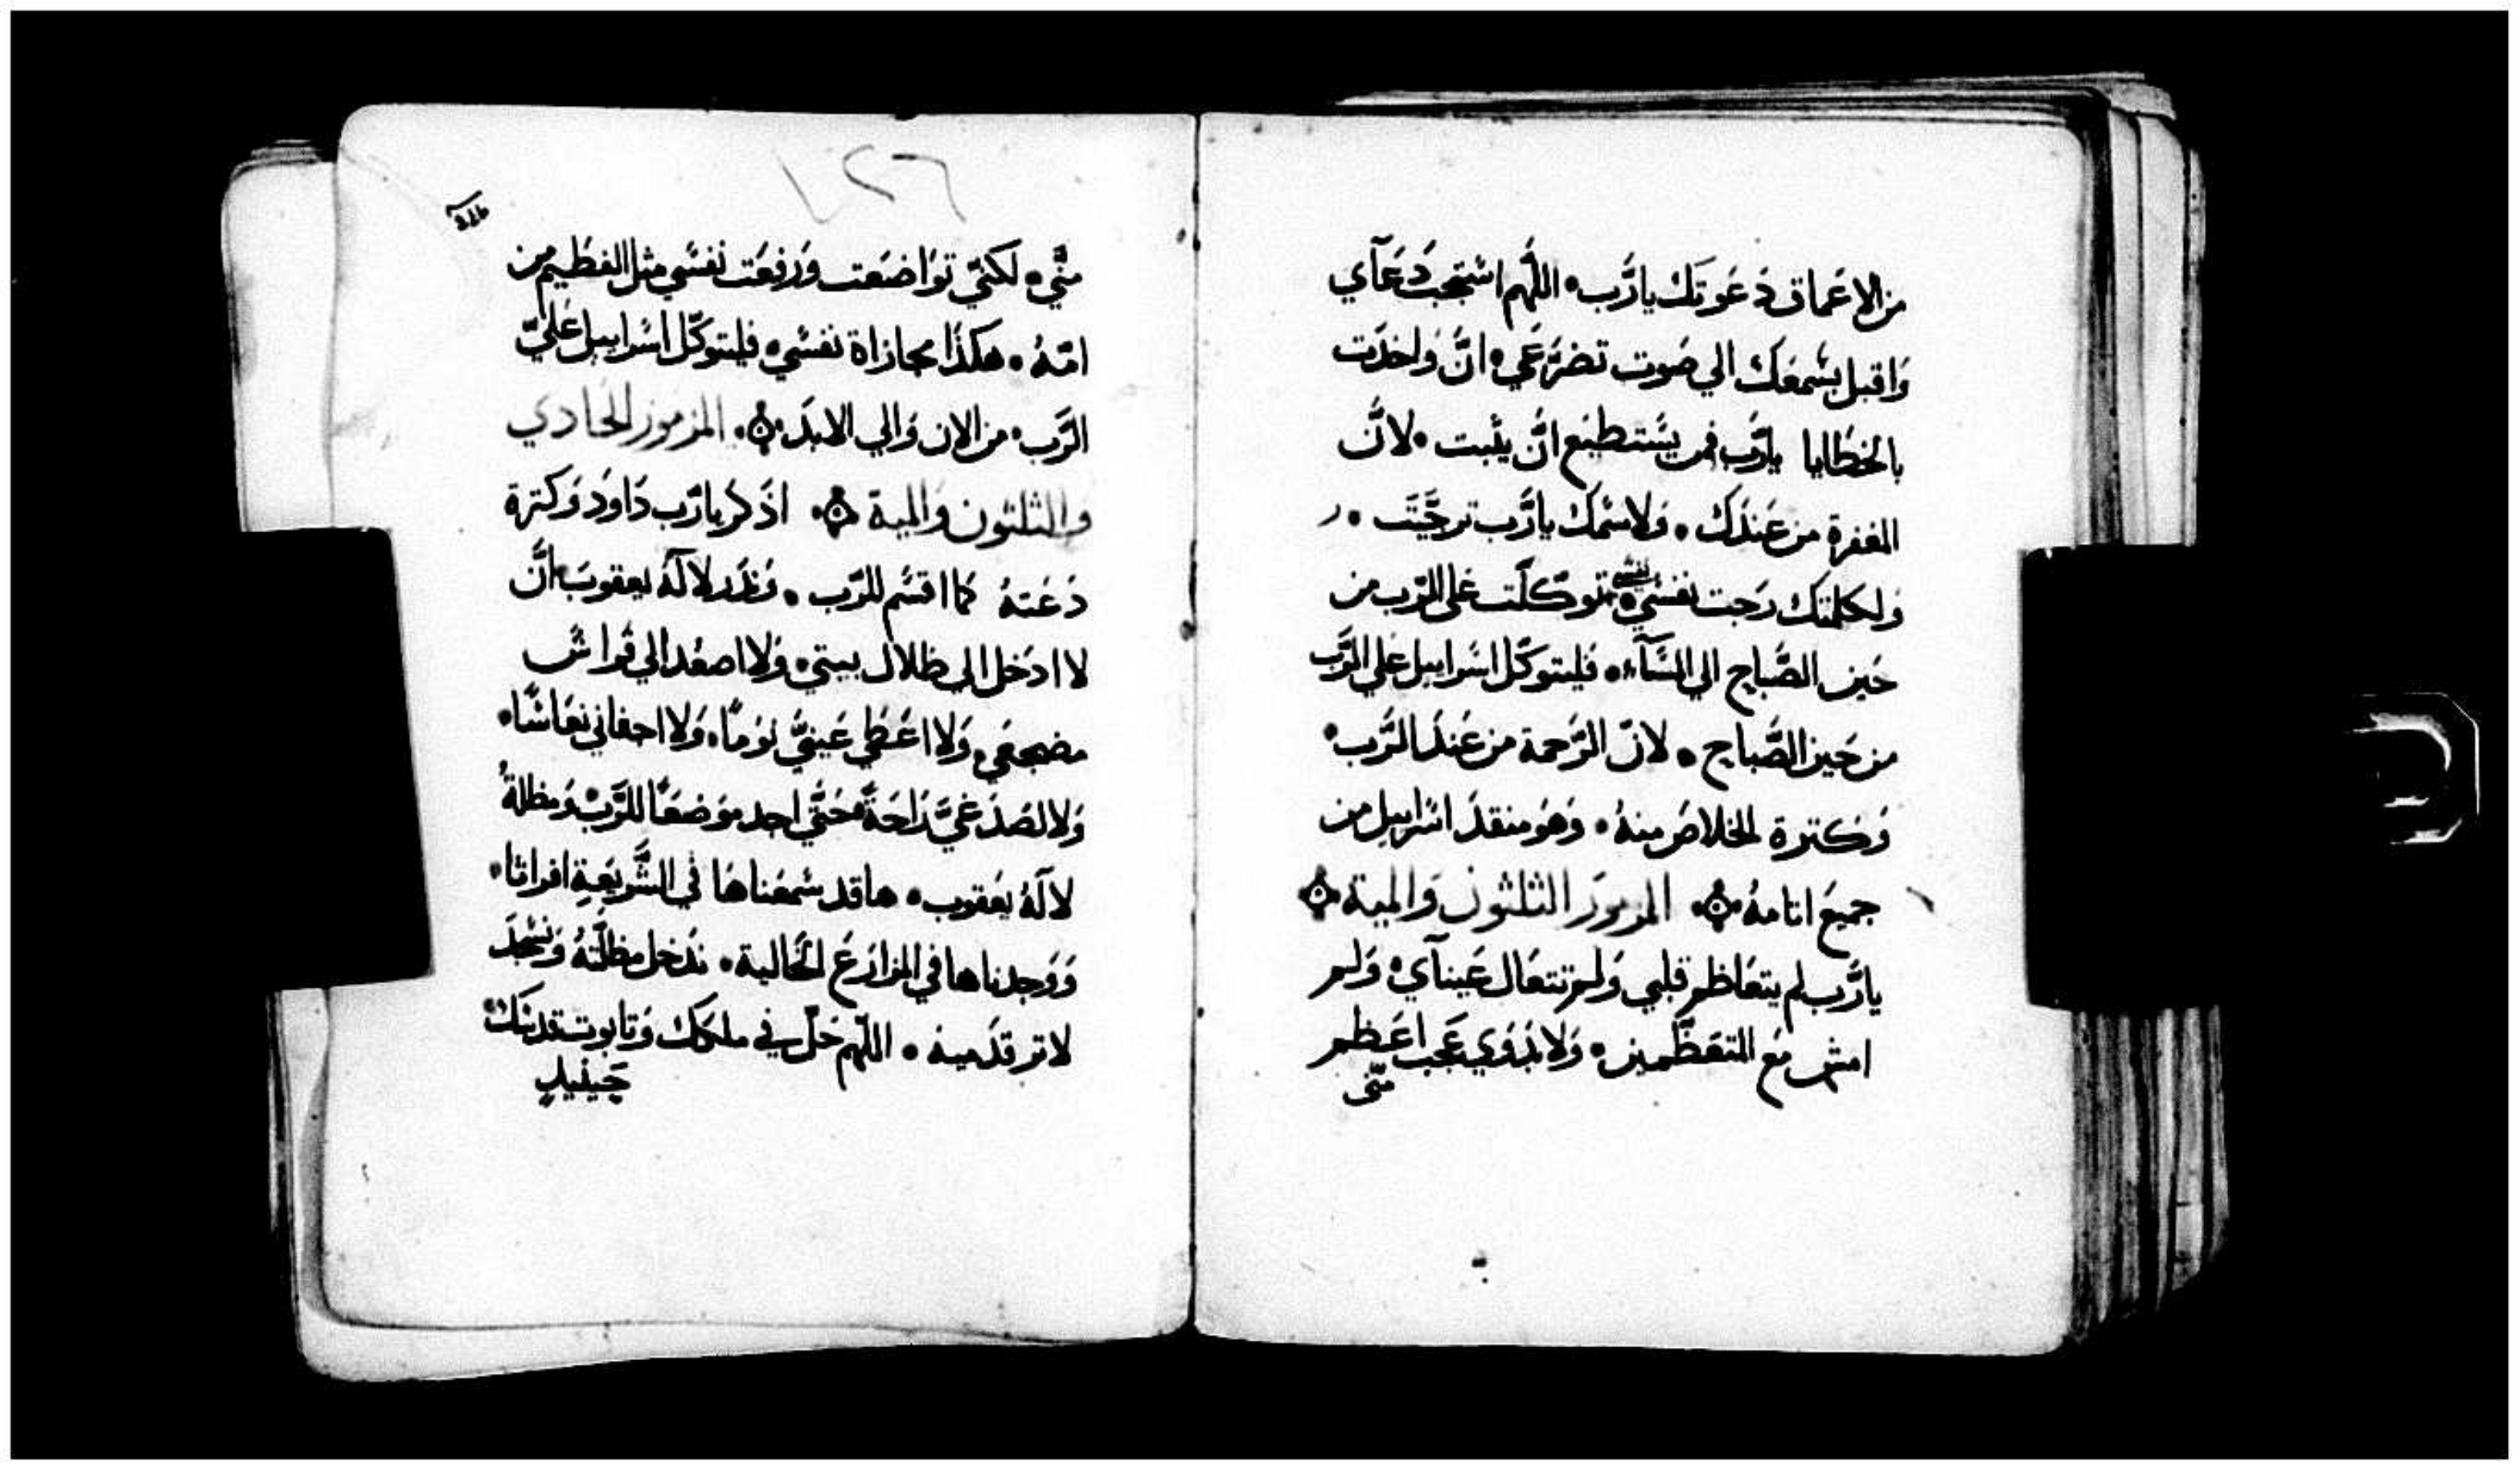 من الاعماق دَعَوتَك يارَّب • اللَّهم اسْتَجبْ دَعَآي
وَاقبل بسْمعَك الي صَوت تضرَّعَي • انَّ وَاخدَت
بالخطايا يارَّب فمن يسْتطيع انَّ يثبت • لانَّ
المغفرة من عَندَك • وَلاسْمك يارَّب ترجَّيَت • ر
وَلكلمتك رَجت نفسْي • توكلَّت عَلي الرَّب من
حَين الصَّباح الي المسَآء • فليتوكَّل اسْراييل عَلي الرَّب
من حَين الصَّباح • لانّ الرَّحمة من عَندَ الرَّب •
وَكترة الخلاصَ منهُ • وَهوَ منقدَ اسْراييل من
جميعَ اتامهُ • المزمورَ الثلثون وَالمية
يارَّب لم يتعَاظم قلبي وَلم تتعَال عَينآي • وَلم
امش مَع المتعَظَّمين • وَلا بدَوي عَجب اعَظم
منّى
١٢٦
منَّي • لكنّي توَاضعَت وَرفعَت نفسْي مثل الفطيم من
امّهُ • هكذَا مجازاة نفسْي • فليتوكَّل اسْراييل عَليَّ
الرَّب • من الان وَالي الابدَ • المزمور الحَادي
وَالثلثون وَالمية اذَكرَ يارَّب دَاودَ وَكترة
دَعَتهُ كما اقسْم للرَّب • وَندَر لالَهُ يعقوبَ انَّ
لا ادَخل الي ظلال بيتي • وَلا اصعُد الي فَراش
مضجعَي • وَلا اعَطي عَينيَّ نوَماً • وَلا اجفاني نعَاسْاً •
وَلا لصَدغيَّ رَاحَةً • حَتَّي اجد موَضعَاً للرَّب • وَمظلةُ
لالَهُ يَعقوب • ها قد سْمعَناهَا في الشَّريعَةِ افراتا •
وَوَجدناها في المزارَعَ الخَالية • ندَخل مظلَّتهُ وَنسْجدَ
لاتر قدَميه • اللَّهم حَلّ في ملكك وَتابوت قدسَك